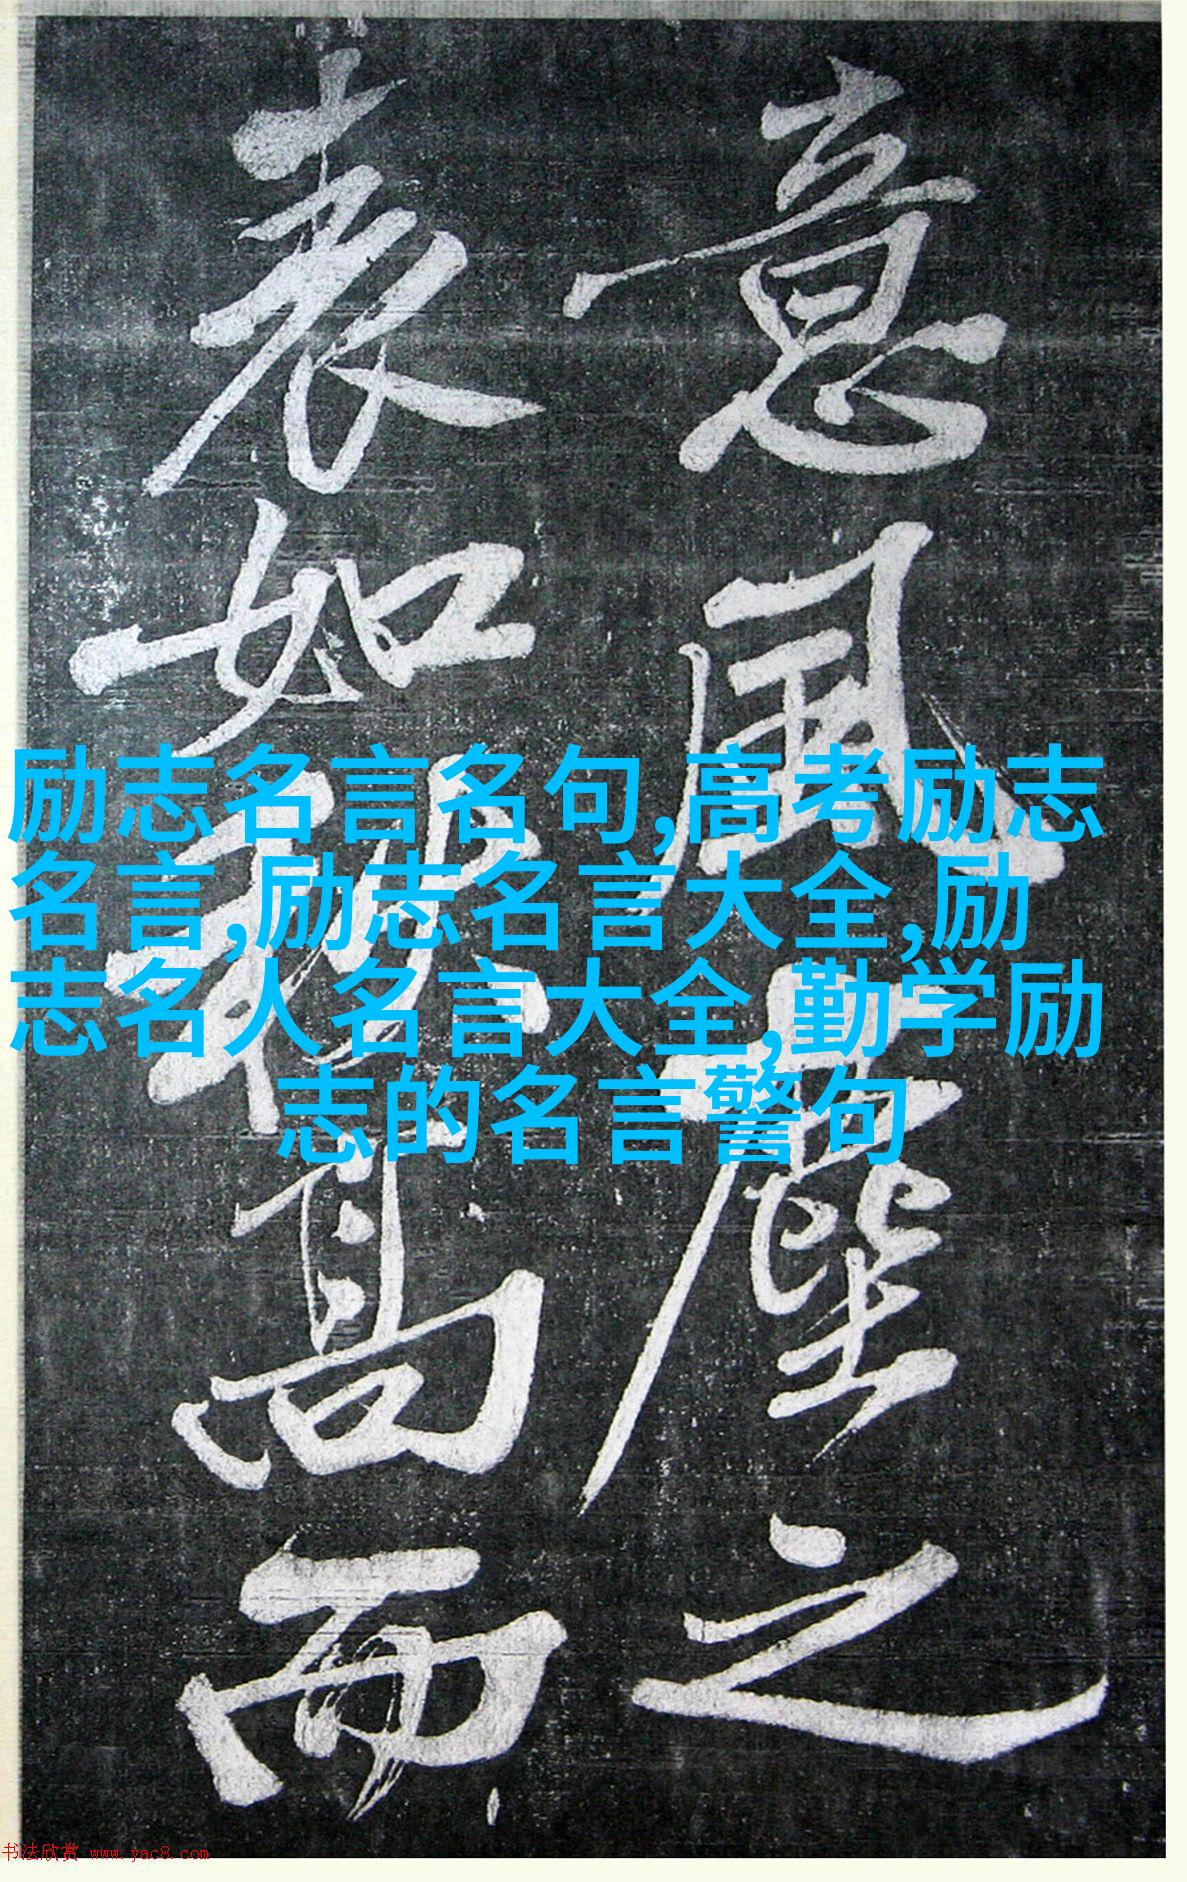 意風塵之
表如秋高而
励志名言名句,高考励志
名言,励志名言大全,励
志名人名言大全,勤学励
志的名言警句
书法欣赏 www.yac8.com